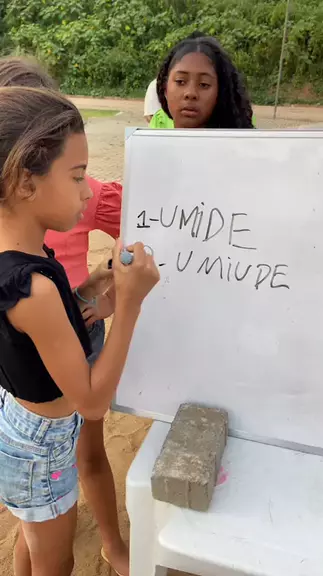 1-UMIDE
-UMIUDE